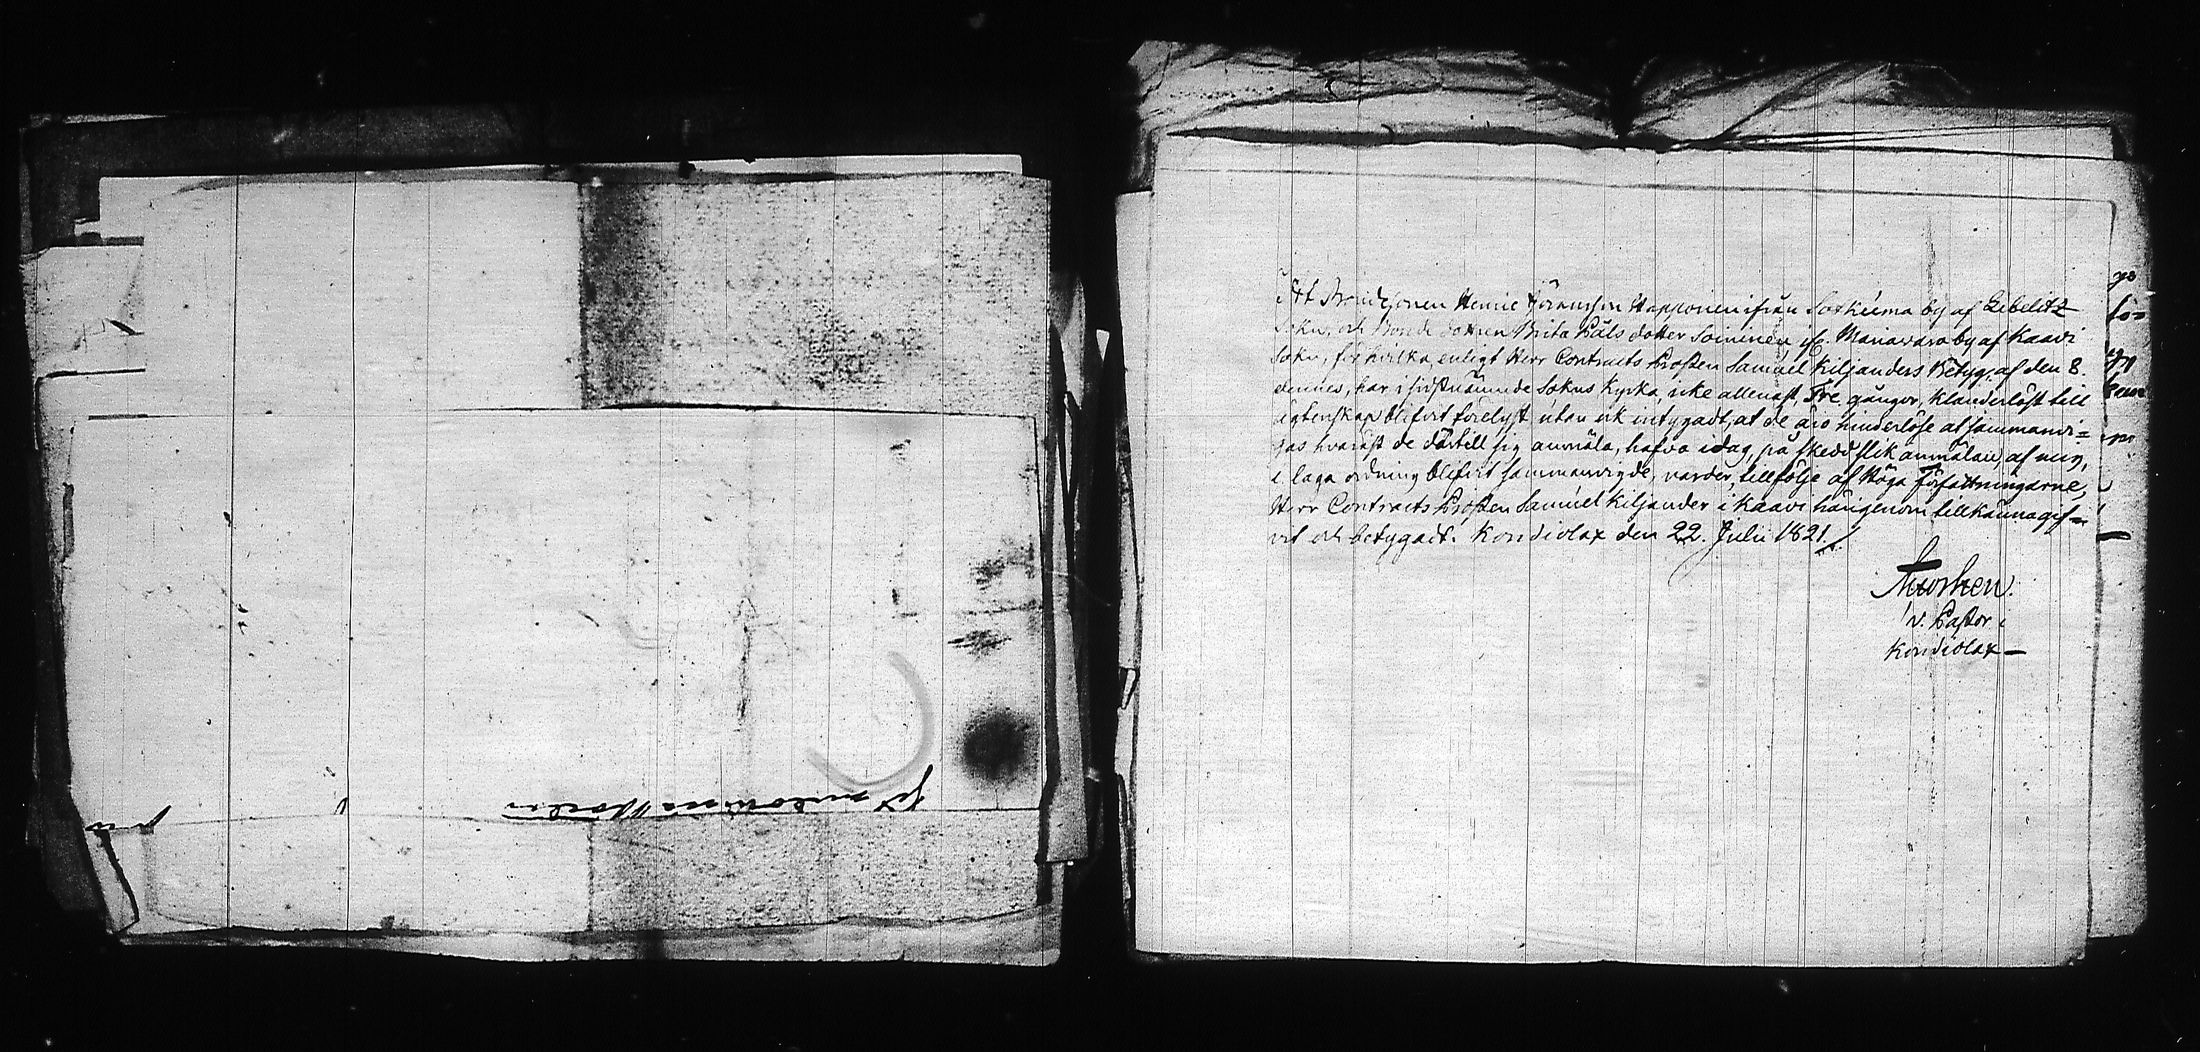 Att Bondesonen Henric Göransson Happonen ifrån Sotkuma by af Libelitz
Sokn, och Bonde dottren Brita Påls dotter Soininen if. Maniavara by af Kaavi
Sokn, för hvilka, enligt Herr Contracts Prosten Samuel Kiljanders Betyg, af den 8.
dennes, har i sistnämnde Sokns Kyrka, icke allenast, Tre gångor, klanderlöst till
ägtenskap blifvit förelyst, utan ok intygadt, at de äro hinderlöse at sammanvi=
gas hvaräst de därtill sig anmäla, hafva idag, på skedd slik anmälan, af mig,
i laga ordning blifvit sammanvigde, varder, tillfölje af Höga Författningarne,
Herr Contracts Prosten Samuel Kiljander i Kaavi härigenom tillkännagif=
vit och betygadt. Kondiolax den 22. Julii 1821.
v. Pastor i
Kondiolax